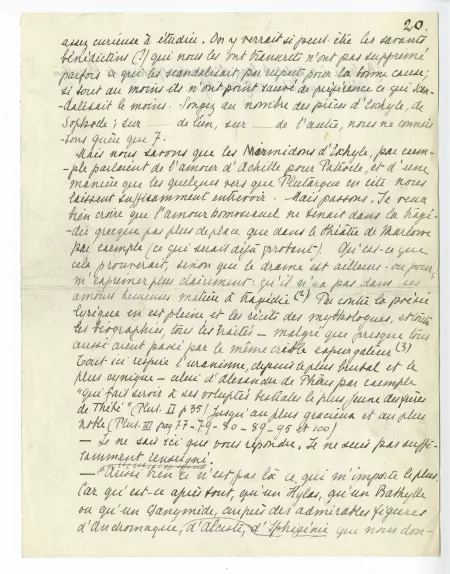 20.
assez curieuse à étudier. On y verrait si peut-être les savants
bénédictins (1) qui nous les ont transcrits n'ont pas supprimé
parfois ce qui les scandalisait, par respect pour la bonne cause;
si tout au moins ils n'ont point sauvé de préférence ce qui scan-
-dalisait le moins. Songez au nombre des pièces d'Eshyle, de
Sophocle; sur — de l'un, sur — de l'autre, nous ne connais
sons guère que 7.
Mais nous savons que les Mirmidons d'Eshyle, par exem-
-ple parlaient de l'amour d'Achille pour Patrocle, et d'une
manière que les quelques vers que Plutarque en cite nous
laissent suffisamment entrevoir. Mais passons. Je veux
bien croire que l'amour homosexuel ne tenait dans la tragé-
-die grecque pas plus de place que dans le théâtre de Marlowe
par exemple (ce qui serait déjà probant). Qu'est-ce que
cela prouverait, sinon que le drame est ailleurs - ou pour
m'exprimer plus clairement: qu'il n'y a pas dans ces
amours heureuses matière à tragédie (2) Par contre la poésie
lyrique en est pleine et les récits des mythologues, et toutes
les biographies, tous les traités - malgré que presque tous
aussi aient passé par le même crible expurgateur (3)
Tout ici respire l'uranisme, depuis le plus brutal et le
plus cynique - celui d'Alexandre de Phères par exemple
"qui fait servir à ses voluptés bestiales le plus jeune des frères
de Thébé" (Plut. II p 35) jusqu'au plus gracieux et au plus
noble (Plut. III pag 77-79-80-89-95 et 100)
— Je ne sais ici que vous répondre. Je ne suis pas suffi-
samment renseigné.
— Aussi bien ce n'est pas là ce qui m'importe le plus.
Car qu'est-ce après tout, qu'un Hylas, qu'un Bathylle
ou qu'un Ganymède, auprès des admirables figures
d'Andromaque, d'Alceste, d'Iphigénie que nous don-